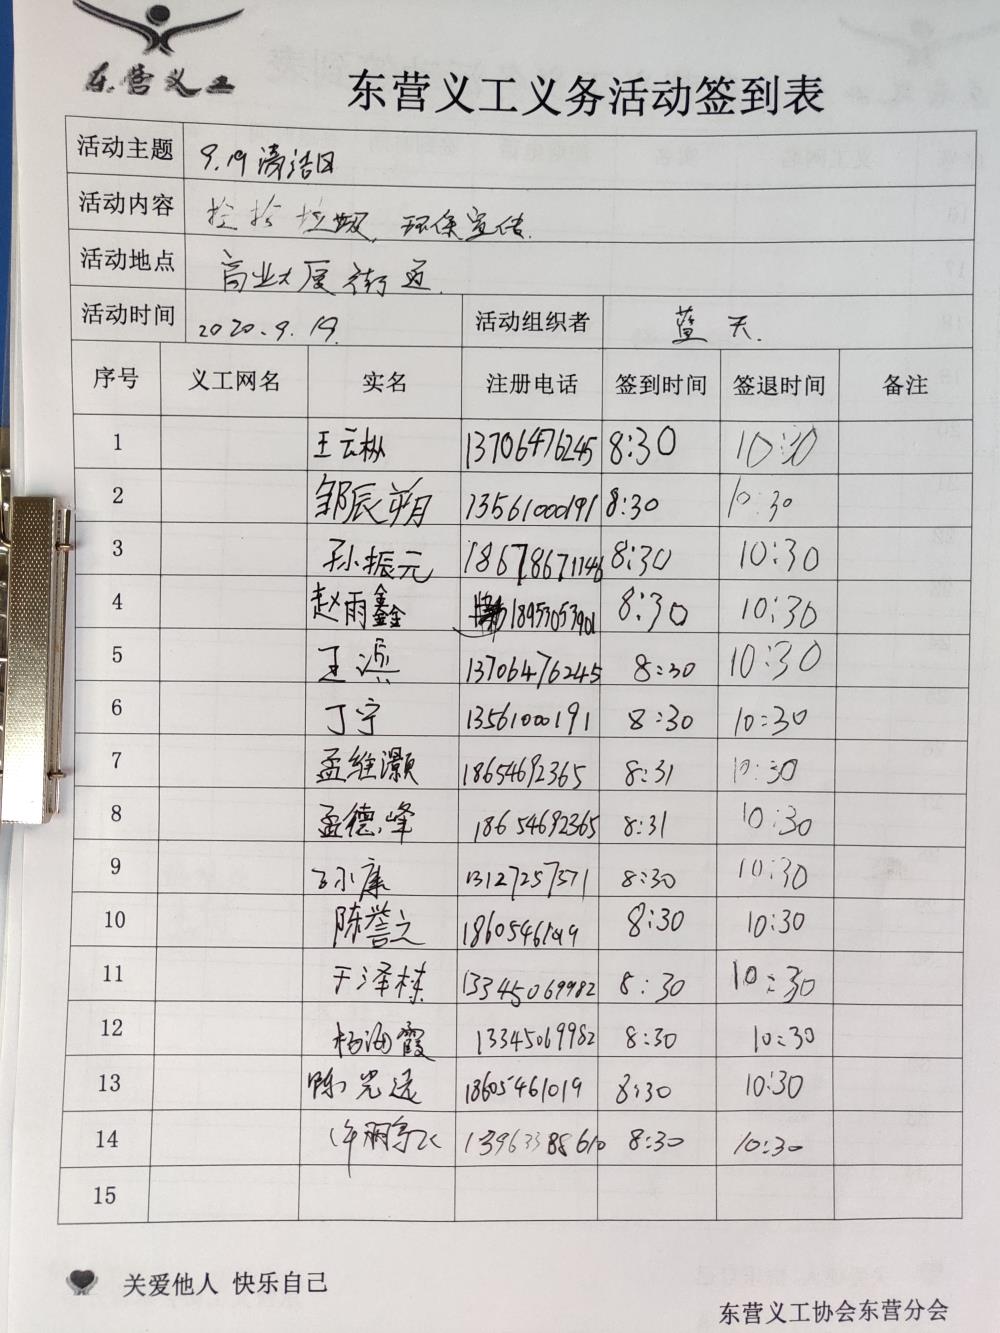 东营义工
东营义工义务活动签到表
活动主题 9.19清洁日
活动内容 捡拾垃圾, 环保宣传.
活动地点 商业大厦街道.
活动时间 2020.9.19. 活动组织者 蓝天.
序号 义工网名 实名 注册电话 签到时间 签退时间 备注
1 王云枞 13706476245 8:30 10:30
2 邹辰朔 13561000191 8:30 10:30
3 孙振元 18678671146 8:30 10:30
4 赵雨鑫 18953053901 8:30 10:30
5 王 13706476245 8:30 10:30
6 丁宁 13561000191 8:30 10:30
7 孟维灏 18654692365 8:31 10:30
8 孟德峰 18654692365 8:31 10:30
9 康 13127257571 8:30 10:30
10 陈誉之 18605461019 8:30 10:30
11 于泽栋 13345069982 8:30 10:30
12 杨海霞 13345069982 8:30 10:30
13 陈光远 18605461019 8:30 10:30
14 许丽 13963388610 8:30 10:30
15
关爱他人 快乐自己
东营义工协会东营分会